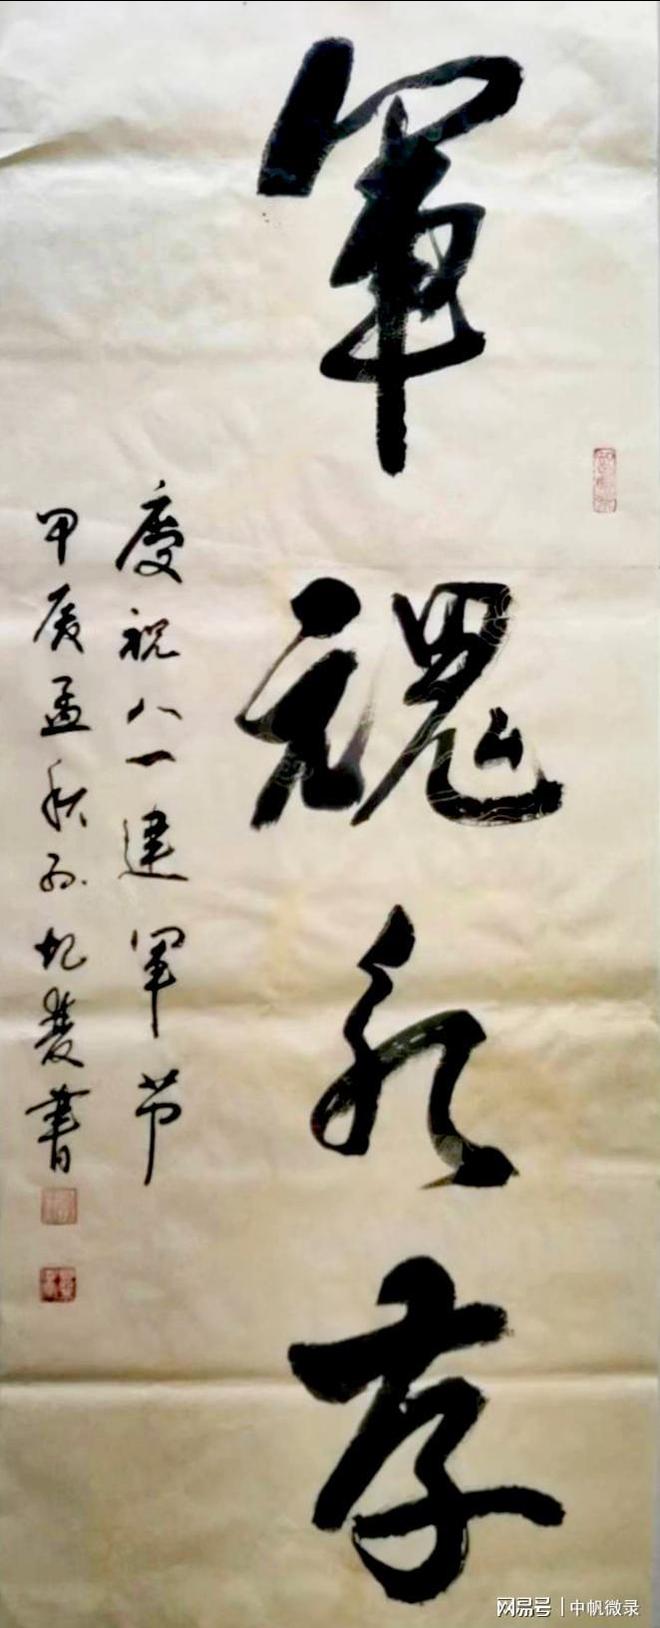 軍魂永存
慶祝八一建軍节
甲辰孟秋孙书
网易号 | 中帆微录